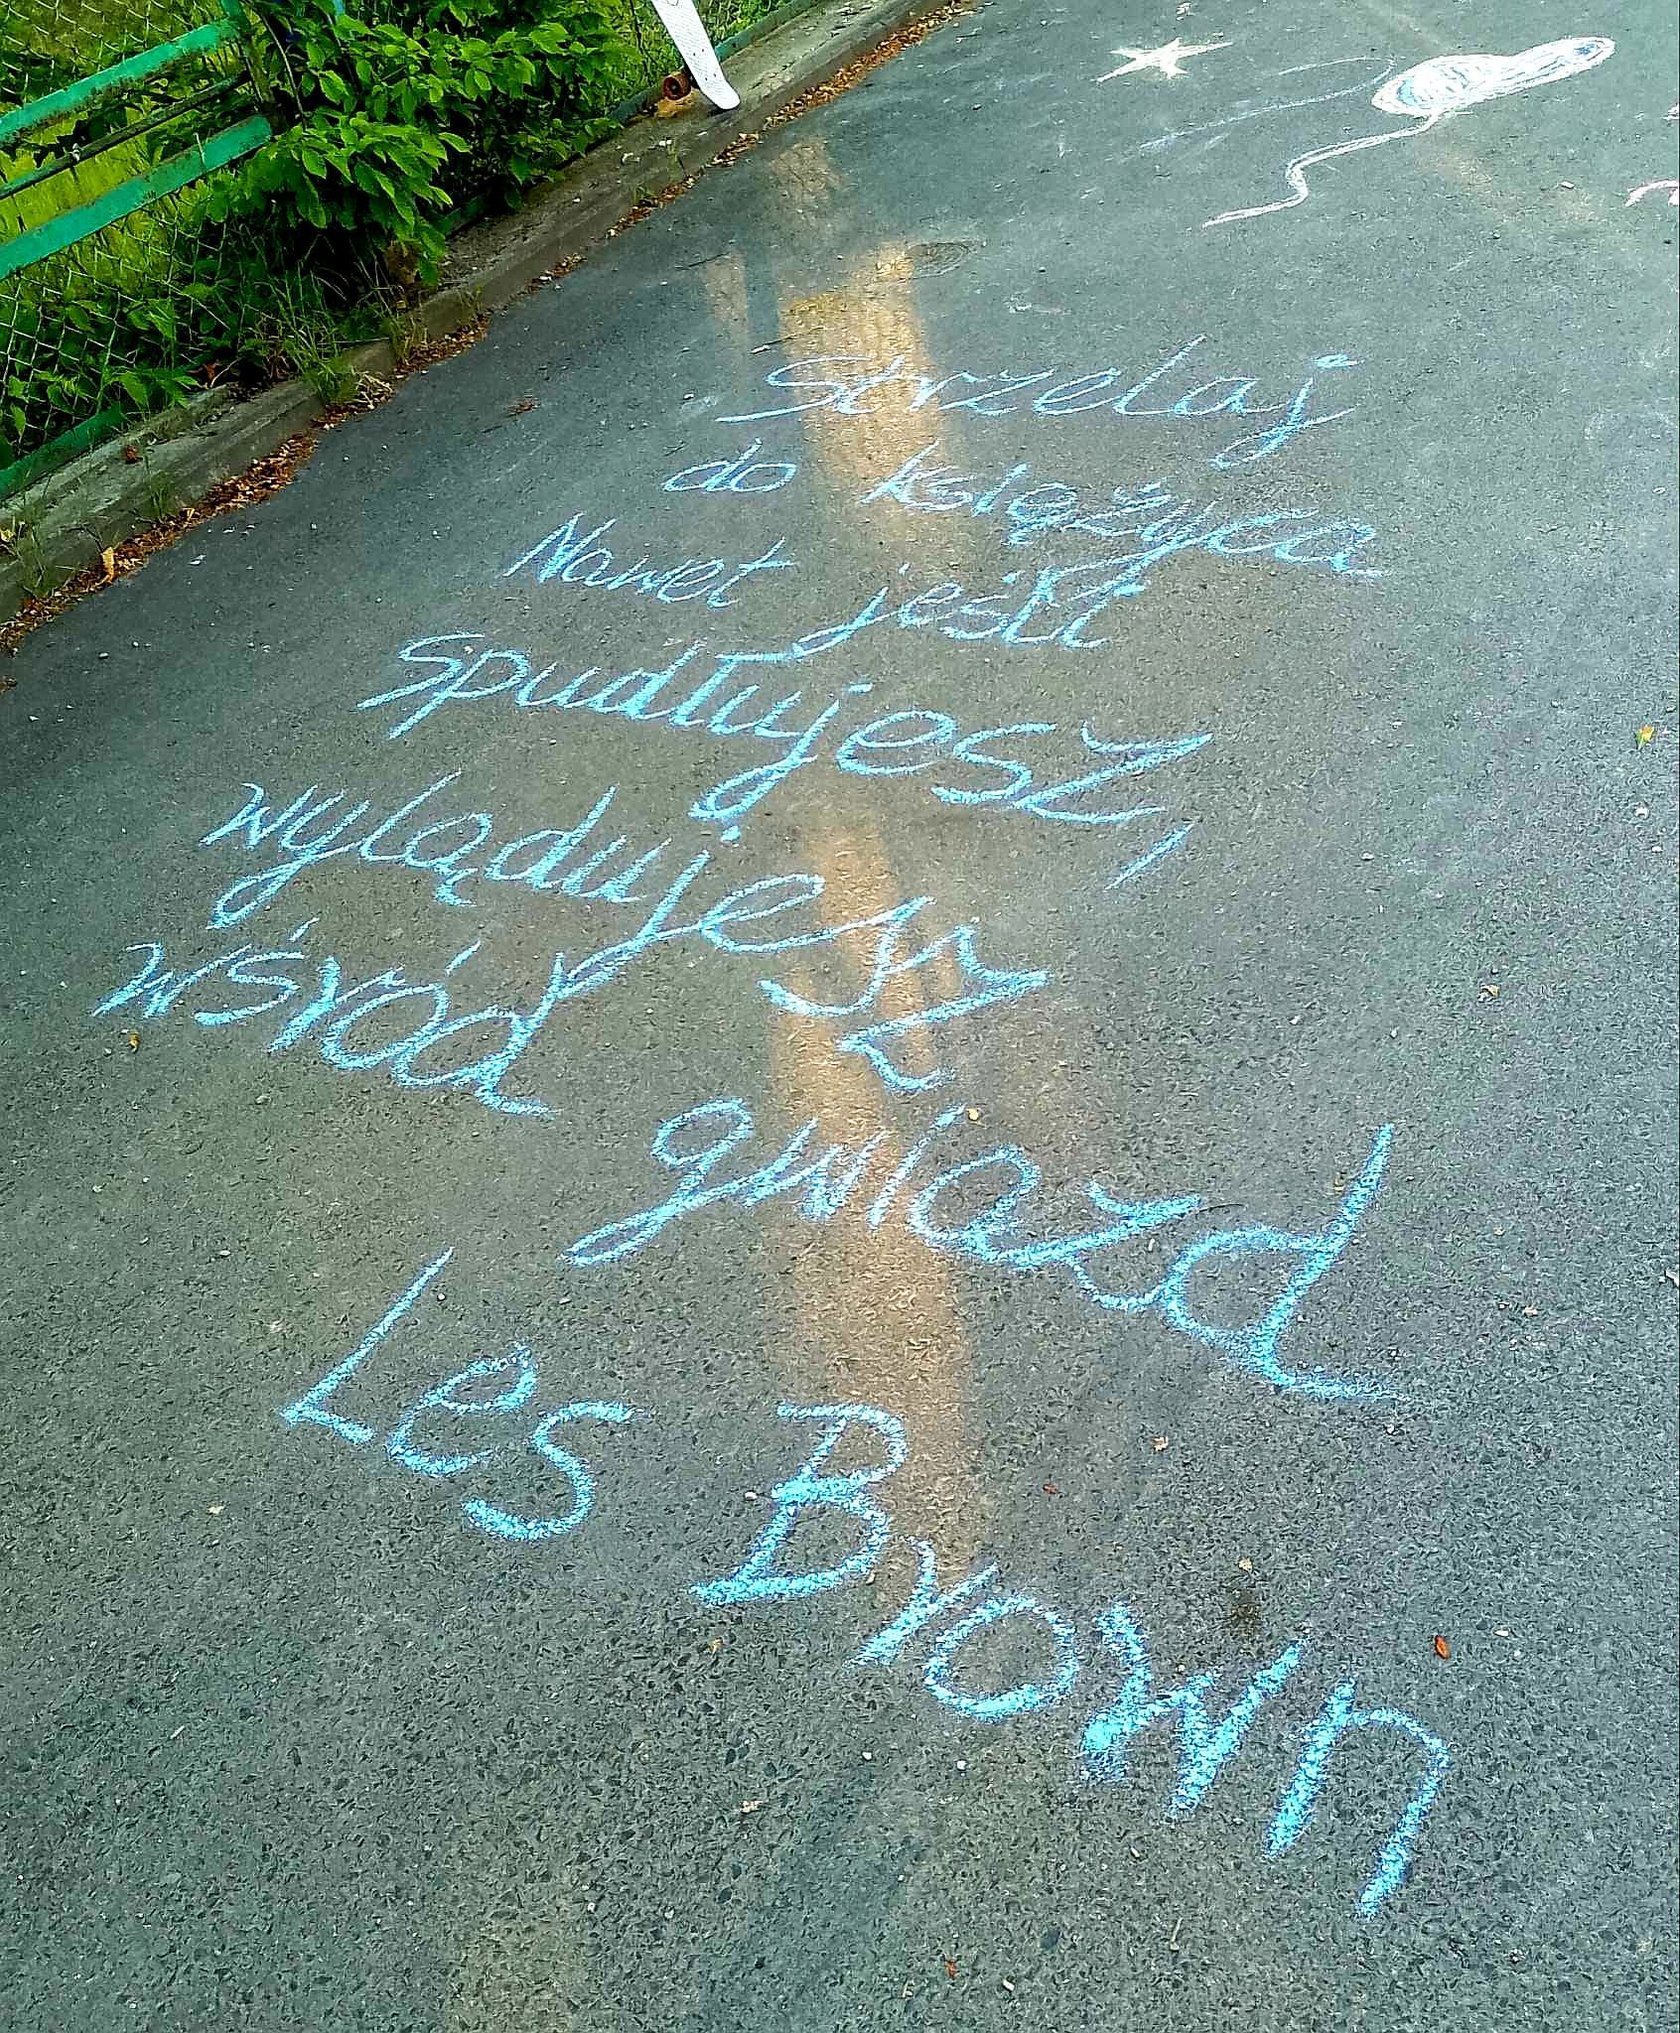 Strzelaj
do księżyca
Nawet jeśli
spudłujesz,
wylądujesz
wśród gwiazd
Les Brown